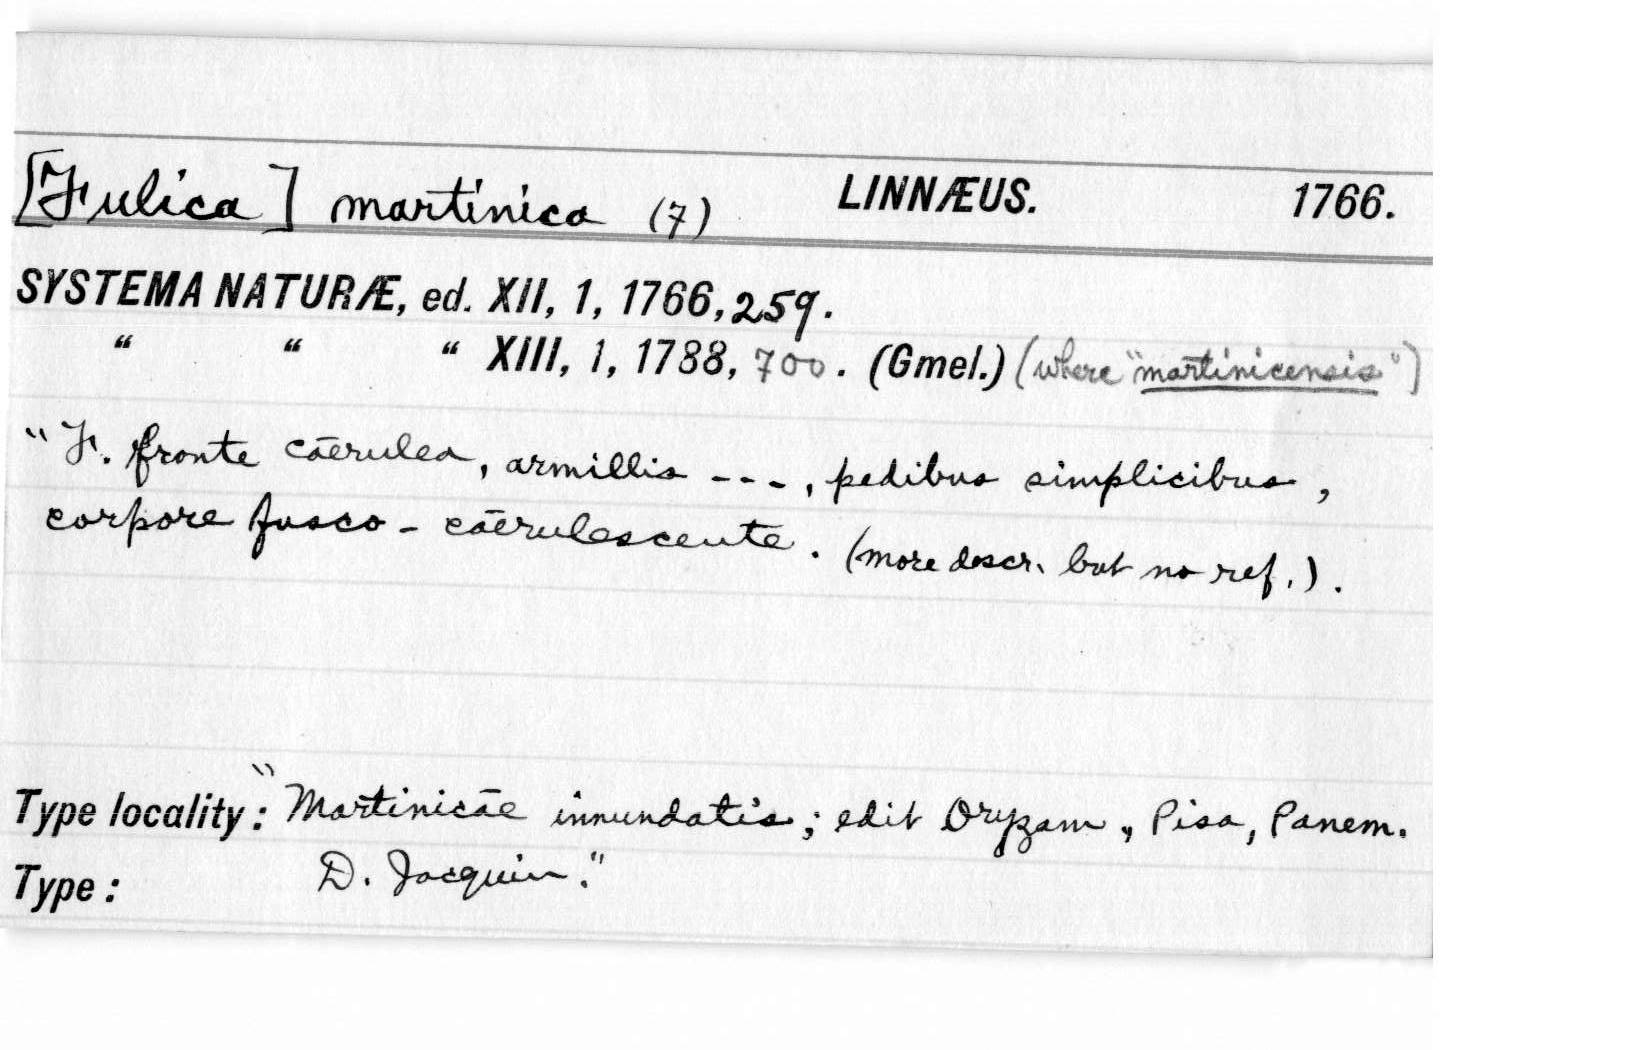 [Fulica] martinica (7) LINNÆUS. 1766.
SYSTEMA NATURÆ, ed. XII, 1, 1766, 259.
“ “ “ XIII, 1, 1788, 700. (Gmel.) (where "martinicensis")
"F. fronte cāerulea, armillis ---, pedibus simplicibus,
corpore fusco-cāerulescente. (more descr. but no ref.).
Type locality: "Martinicāe innundatis; edit Oryzam, Pisa, Panem.
Type: D. Jacquin."